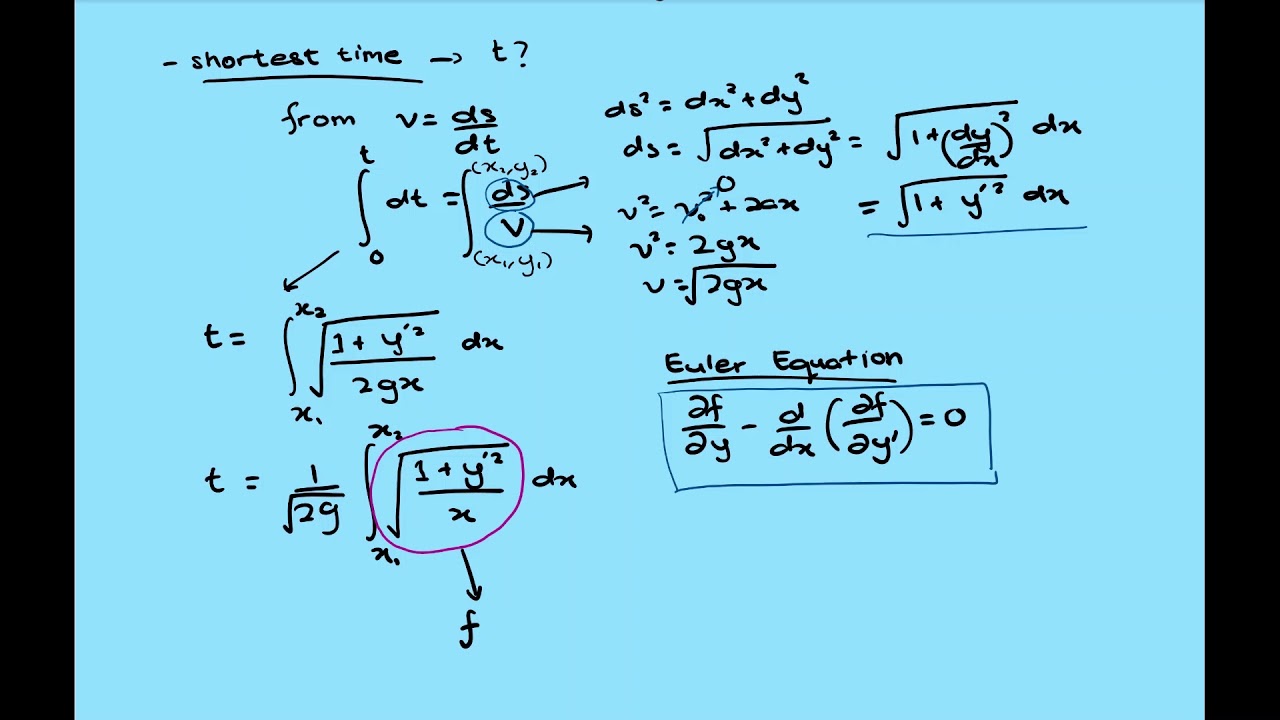 - shortest time → t?
from v = ds/dt
∫₀ᵗ dt = ∫₍ₓ₁,y₁₎^(x₂,y₂) ds/v
ds² = dx² + dy²
ds = √(dx² + dy²) = √(1 + (dy/dx)²) dx
= √(1 + y'²) dx
v² = v₀²→0 + 2ax
v² = 2gx
v = √(2gx)
t = ∫ₓ₁^x₂ √((1 + y'²)/(2gx)) dx
t = 1/√(2g) ∫ₓ₁^x₂ √((1 + y'²)/x) dx
f
Euler Equation
∂f/∂y - d/dx (∂f/∂y') = 0